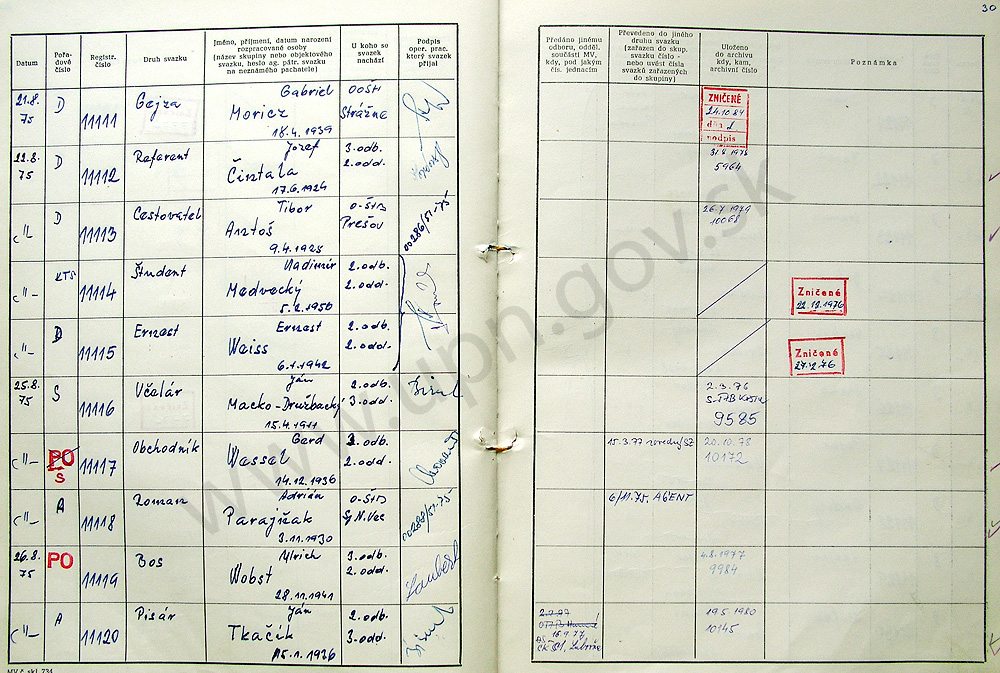 30
Datum
Pořadové číslo
Registr. číslo
Druh svazku
Jméno, příjmení, datum narození rozpracované osoby (název skupiny nebo objektového svazku, heslo ag. pátr. svazku na neznámého pachatele)
U koho se svazek nachází
Podpis oper. prac. který svazek přijal
Předáno jinému odboru, odděl. součásti MV, kdy, pod jakým čís. jednacím
Převedeno do jiného druhu svazku (zařazen do skup. svazku číslo - nebo uvést čísla svazků zařazených do skupiny)
Uloženo do archivu kdy, kam, archivní číslo
Poznámka
21.8. 75 D 11111 Gejza Gabriel Moricz 18.4.1939 OOŠTB Strážne
ZNIČENÉ
24.10.84
dňa
podpis
22.8. 75 D 11112 Referent Jozef Čintala 17.6.1924 3.odb. 2.odd.
5964
-"- D 11113 Cestovateľ Tibor Antoš 9.4.1925 O-ŠTB Prešov 00286/51-75
26.7.1979
10068
-"- KTS 11114 Študent Vladimír Medvecký 5.2.1950 2.odb. 2.odd.
Zničené
22.12.1976
-"- D 11115 Ernest Ernest Weiss 6.1.1942 2.odb. 2.odd.
Zničené
27.12.76
25.8. 75 S 11116 Včelár Ján Macko-Družbacký 15.4.1911 2.odb. 3.odd.
2.3.76
9585
-"- PO S 11117 Obchodník Gerd Wessel 14.12.1936 2.odb. 2.odd.
15.3.77
20.10.78
10172
-"- A 11118 Roman Adrián Parajžák 3.11.1930 O-ŠTB 00288/51-75
6/11.75. AGENT
26.8. 75 PO 11119 Bos Ulrich Wobst 28.11.1941 3.odb. 2.odd.
4.8.1977
9984
-"- A 11120 Pisár Ján Tkáčik 15.1.1926 2.odb. 3.odd.
19.5.1980
10145
www.upn.gov.sk